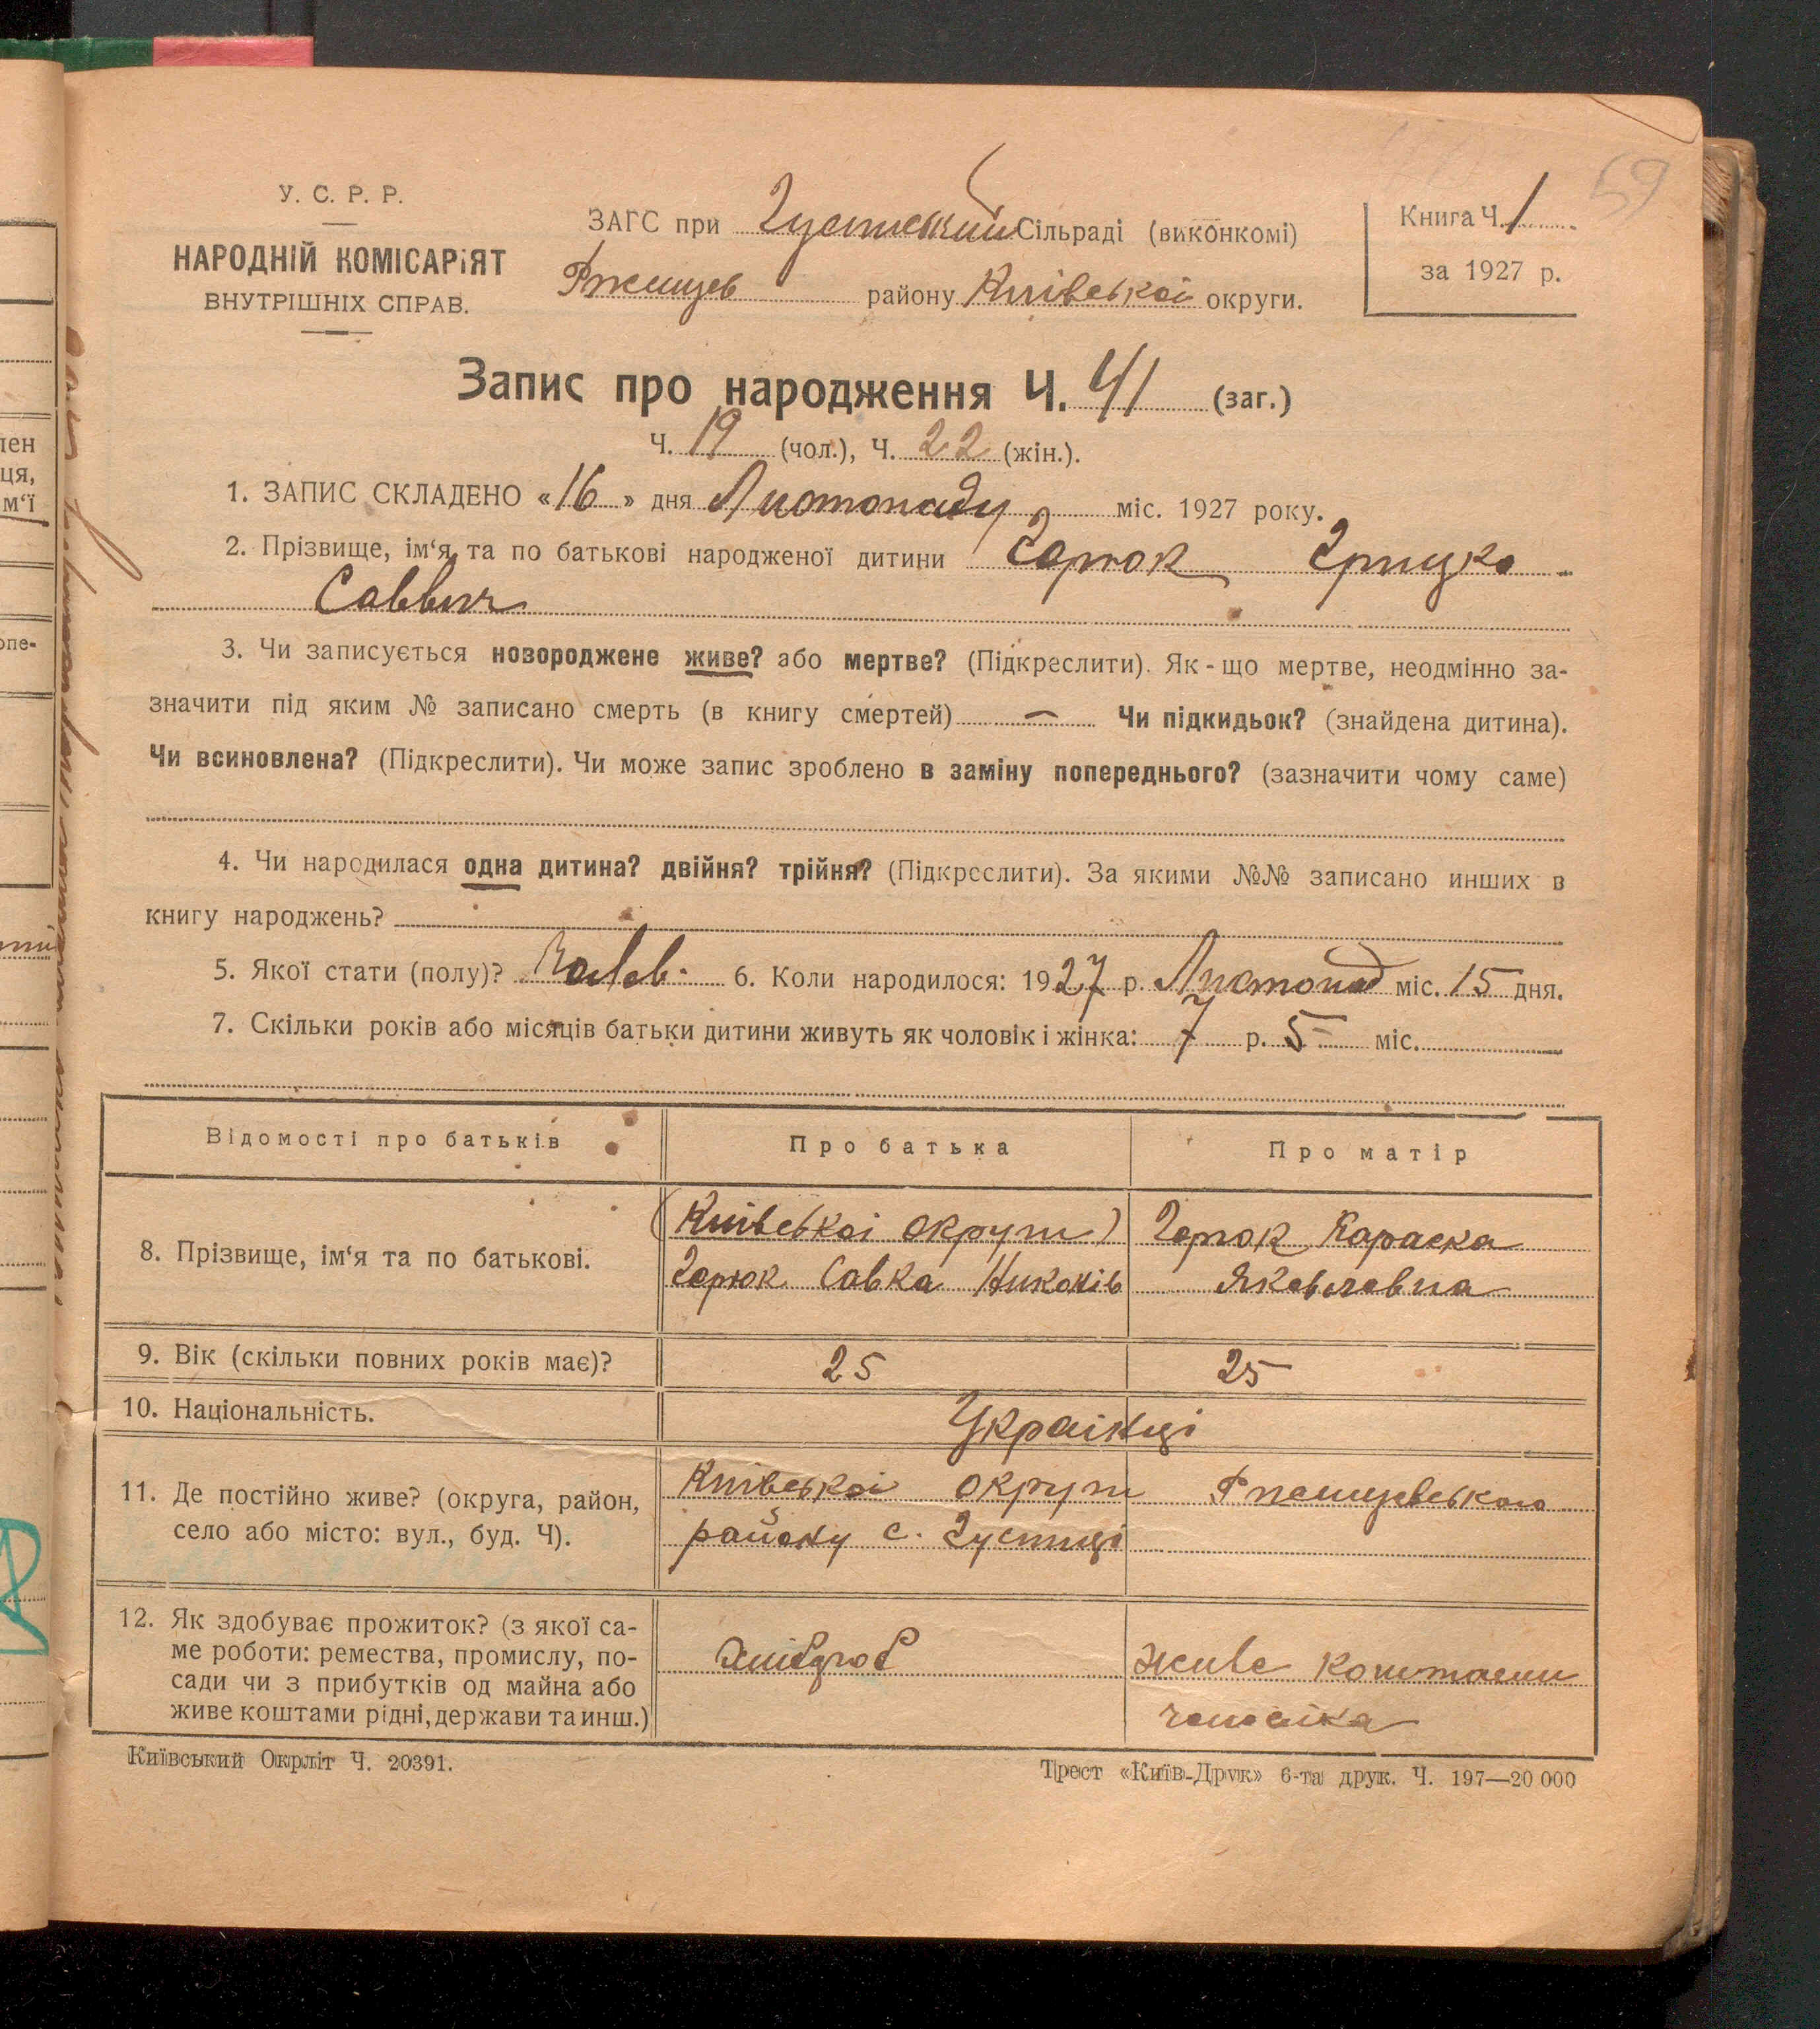 59
У. С. Р. Р.
НАРОДНІЙ КОМІСАРІЯТ
ВНУТРІШНІХ СПРАВ.
ЗАГС при Густинській Сільраді (виконкомі)
Ржищев району Київської округи.
Книга Ч. 1
за 1927 р.
Запис про народження Ч. 41 (заг.)
Ч. 19 (чол.), Ч. 22 (жін.).
1. ЗАПИС СКЛАДЕНО «16» дня Листопаду міс. 1927 року.
2. Прізвище, ім‘я та по батькові народженої дитини Горюк Грицко
Саввич
3. Чи записується новороджене живе? або мертве? (Підкреслити). Як-що мертве, неодмінно за-
значити під яким № записано смерть (в книгу смертей) — Чи підкидьок? (знайдена дитина).
Чи всиновлена? (Підкреслити). Чи може запис зроблено в заміну попереднього? (зазначити чому саме)
4. Чи народилася одна дитина? двійня? трійня? (Підкреслити). За якими №№ записано инших в
книгу народжень?
5. Якої стати (полу)? 6. Коли народилося: 1927 р. Листопад міс. 15 дня.
7. Скільки років або місяців батьки дитини живуть як чоловік і жінка: 7 р. 5 міс.
Відомості про батьків Про батька Про матір
8. Прізвище, ім‘я та по батькові.
(Київської округи) Горюк Параска
Горюк Савка Никонів Яковлевна
9. Вік (скільки повних років має)? 25 25
10. Національність. Українці
11. Де постійно живе? (округа, район,
село або місто: вул., буд. Ч).
Київскої округи Ржищевського
району с. Густинці
12. Як здобуває прожиток? (з якої са-
ме роботи: ремества, промислу, по-
сади чи з прибутків од майна або
живе коштами рідні, держави та инш.)
Хлібороб живе коштами
чоловіка
Київський Окрліт Ч. 20391.
Трест «Київ-Друк» 6-та друк. Ч. 197—20 000